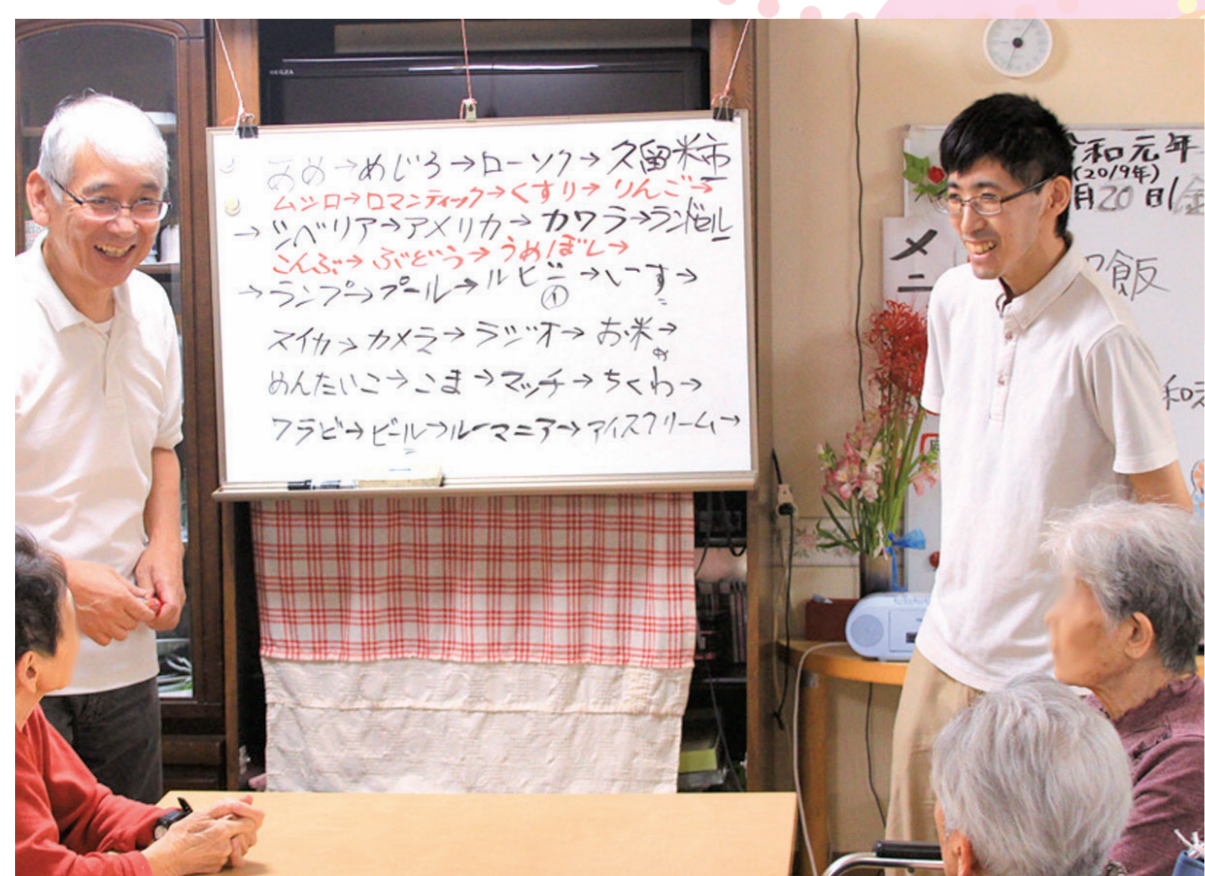 REGZA
あめ→めじろ→ローソク→久留米市
ムシロ→ロマンティック→くすり→りんご→
→シベリア→アメリカ→カワラ→ランドセル
こんぶ→ぶどう→うめぼし→
→ランプ→プール→ルビー→いーす→
①
スイカ→カメラ→ラジオ→お米→
め
めんたいこ→こま→マッチ→ちくわ→
ワラビ→ビール→ルーマニア→アイスクリーム→
令和元年
(2019年)
月20日(金
メニ
飯